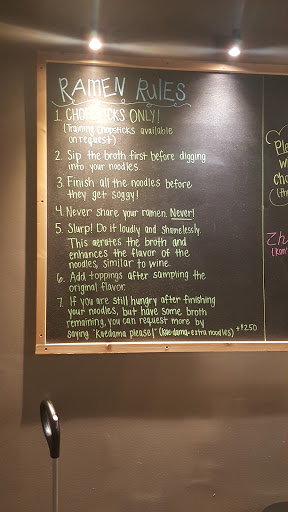 RAMEN RULES
1. CHOPSTICKS ONLY!
(Training Chopsticks available
on request)
2. Sip the broth first before digging
into your noodles.
3. Finish all the noodles before
they get soggy!
4. Never share your ramen. Never!
5. Slurp! Do it loudly and shamelessly.
This aerates the broth and
enhances the flavor of the
noodles, similar to wine.
6. Add toppings after sampling the
original flavor.
7. If you are still hungry after finishing
your noodles, but have some broth
remaining, you can request more by
saying "Kaedama please!" (kae-dama=extra noodles) +$2.50
Ple
w
cho
(th
てん
(kom